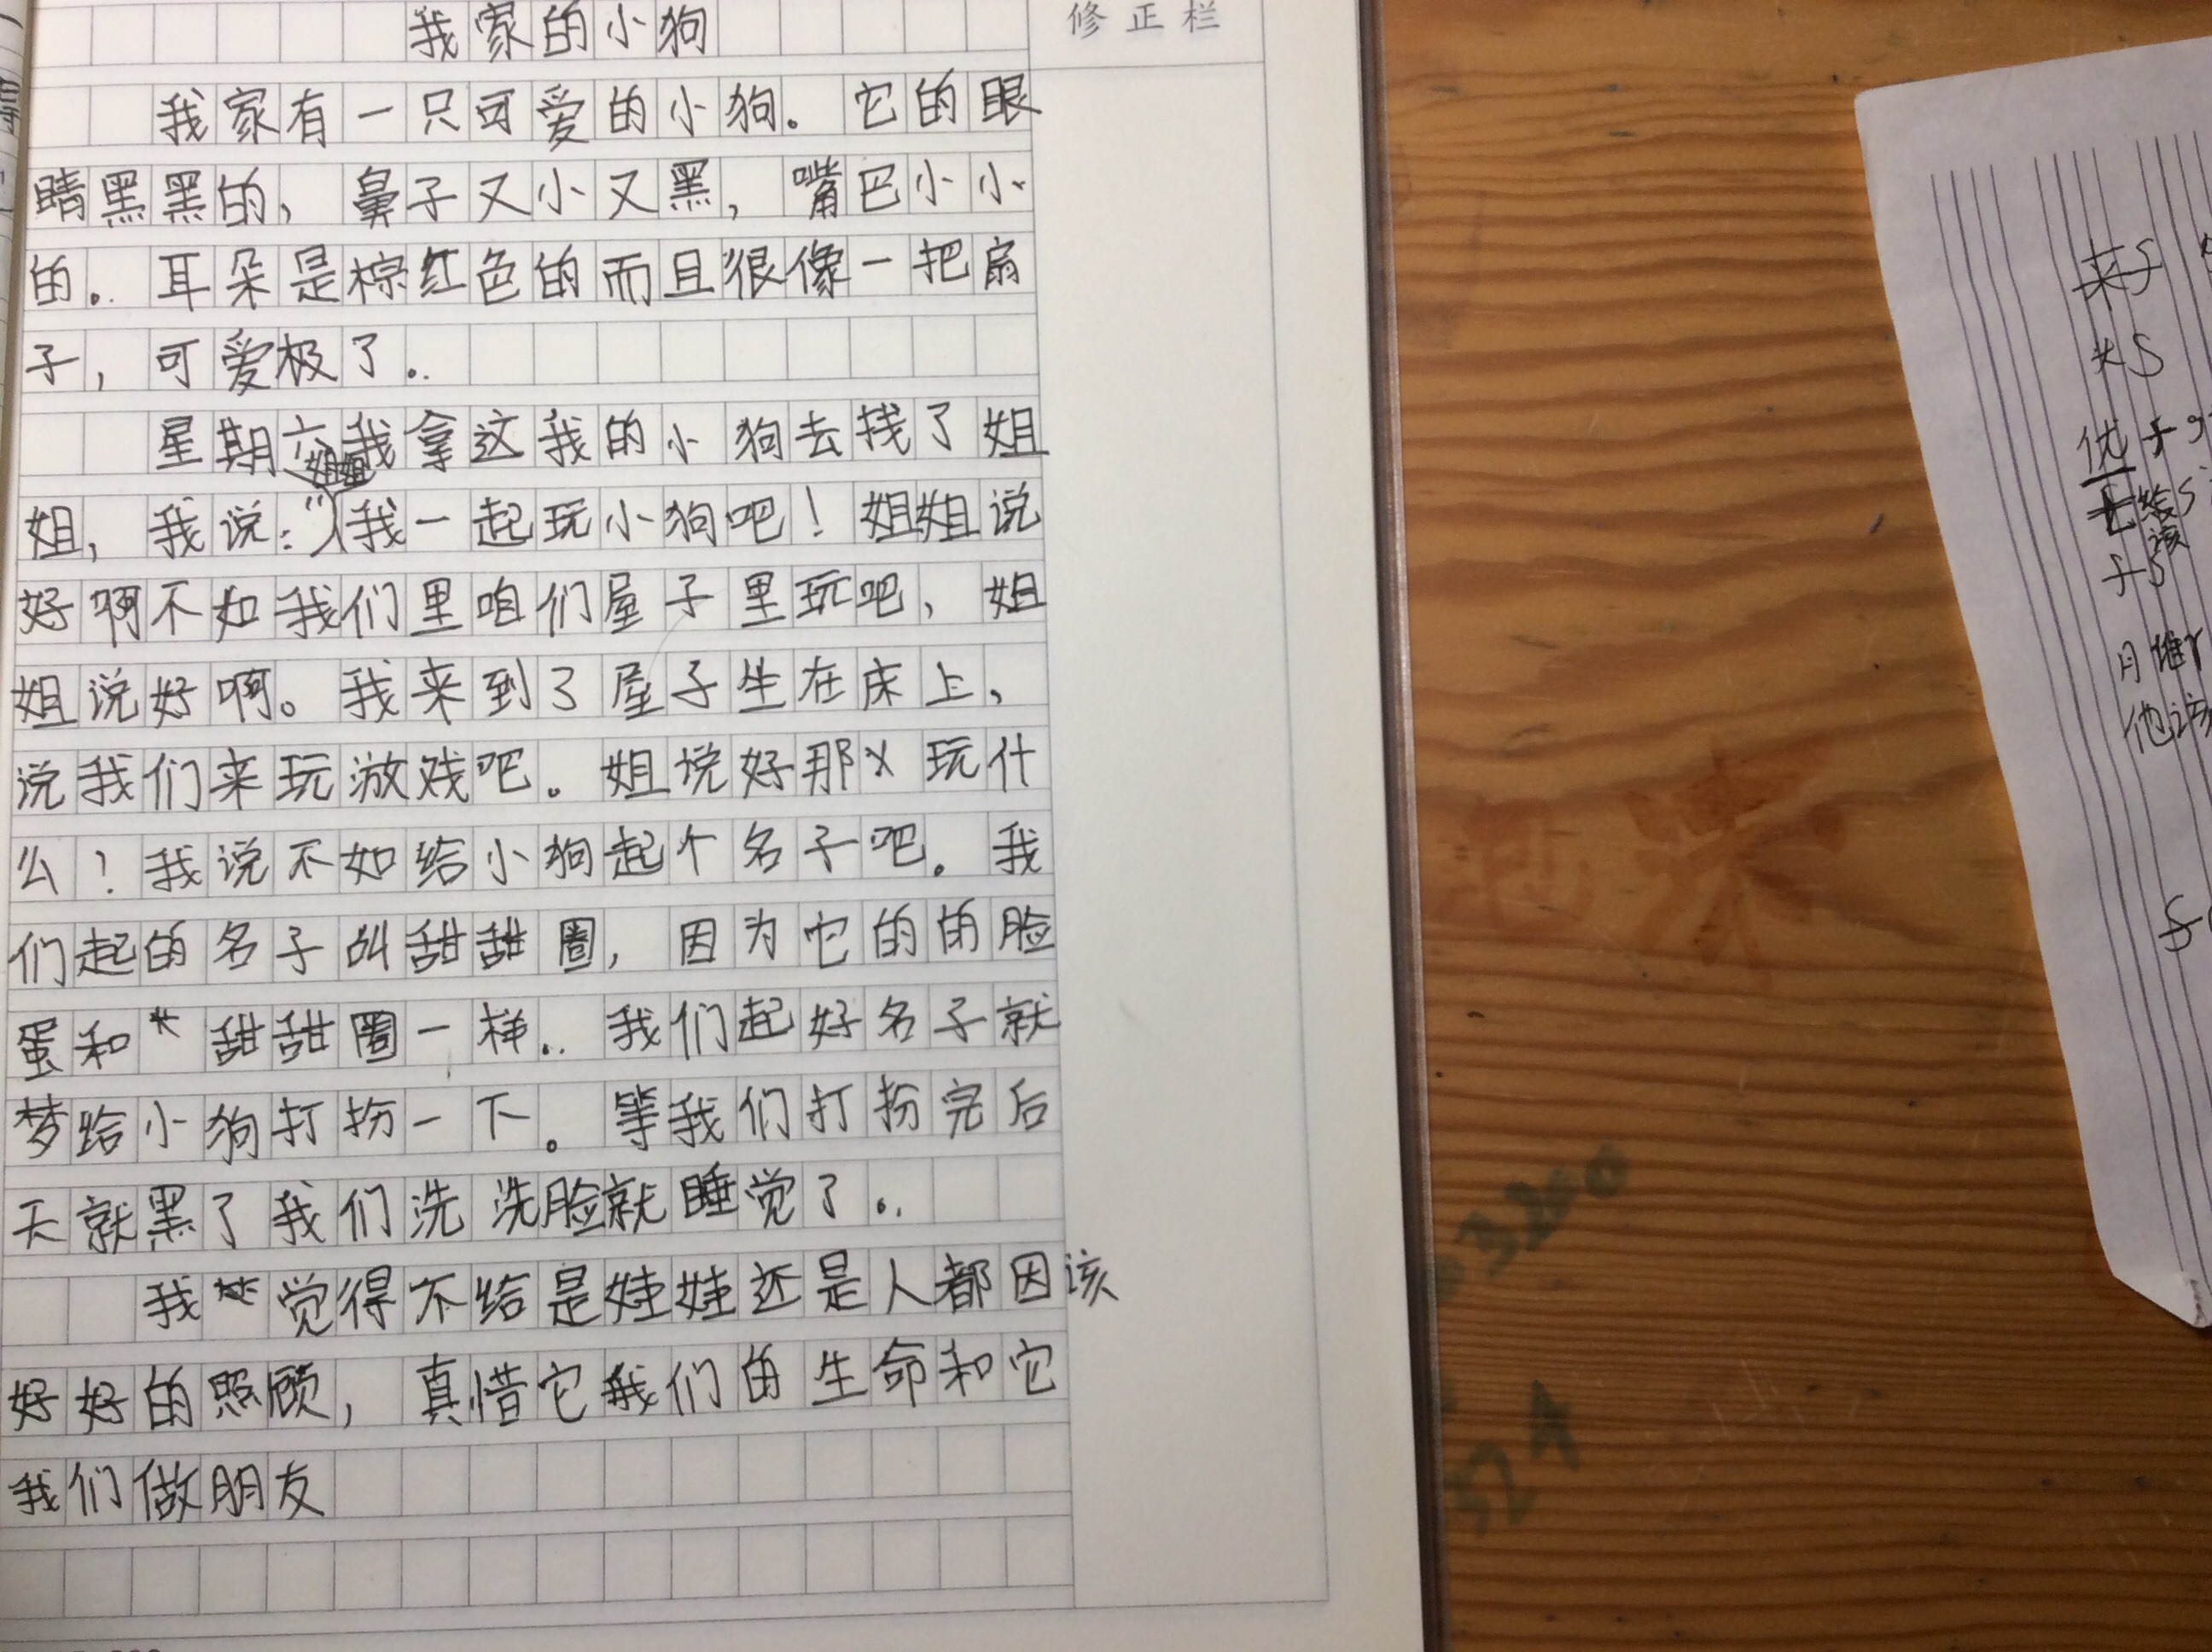 我家的小狗
修正栏
我家有一只可爱的小狗。它的眼
睛黑黑的，鼻子又小又黑，嘴巴小小
的。耳朵是棕红色的而且很像一把扇
子，可爱极了。
星期六我拿这我的小狗去找了姐
姐，我说：“姐姐我一起玩小狗吧！姐姐说
好啊不如我们里咱们屋子里玩吧，姐
姐说好啊。我来到了屋子坐在床上，
说我们来玩游戏吧。姐说好那玩什
么？我说不如给小狗起个名子吧。我
们起的名子叫甜甜圈，因为它的的脸
蛋和甜甜圈一样。我们起好名子就
梦给小狗打扮一下。等我们打扮完后
天就黑了我们洗洗脸就睡觉了。
我觉得不给是娃娃还是人都因该
好好的照顾，真惜它我们的生命和它
我们做朋友